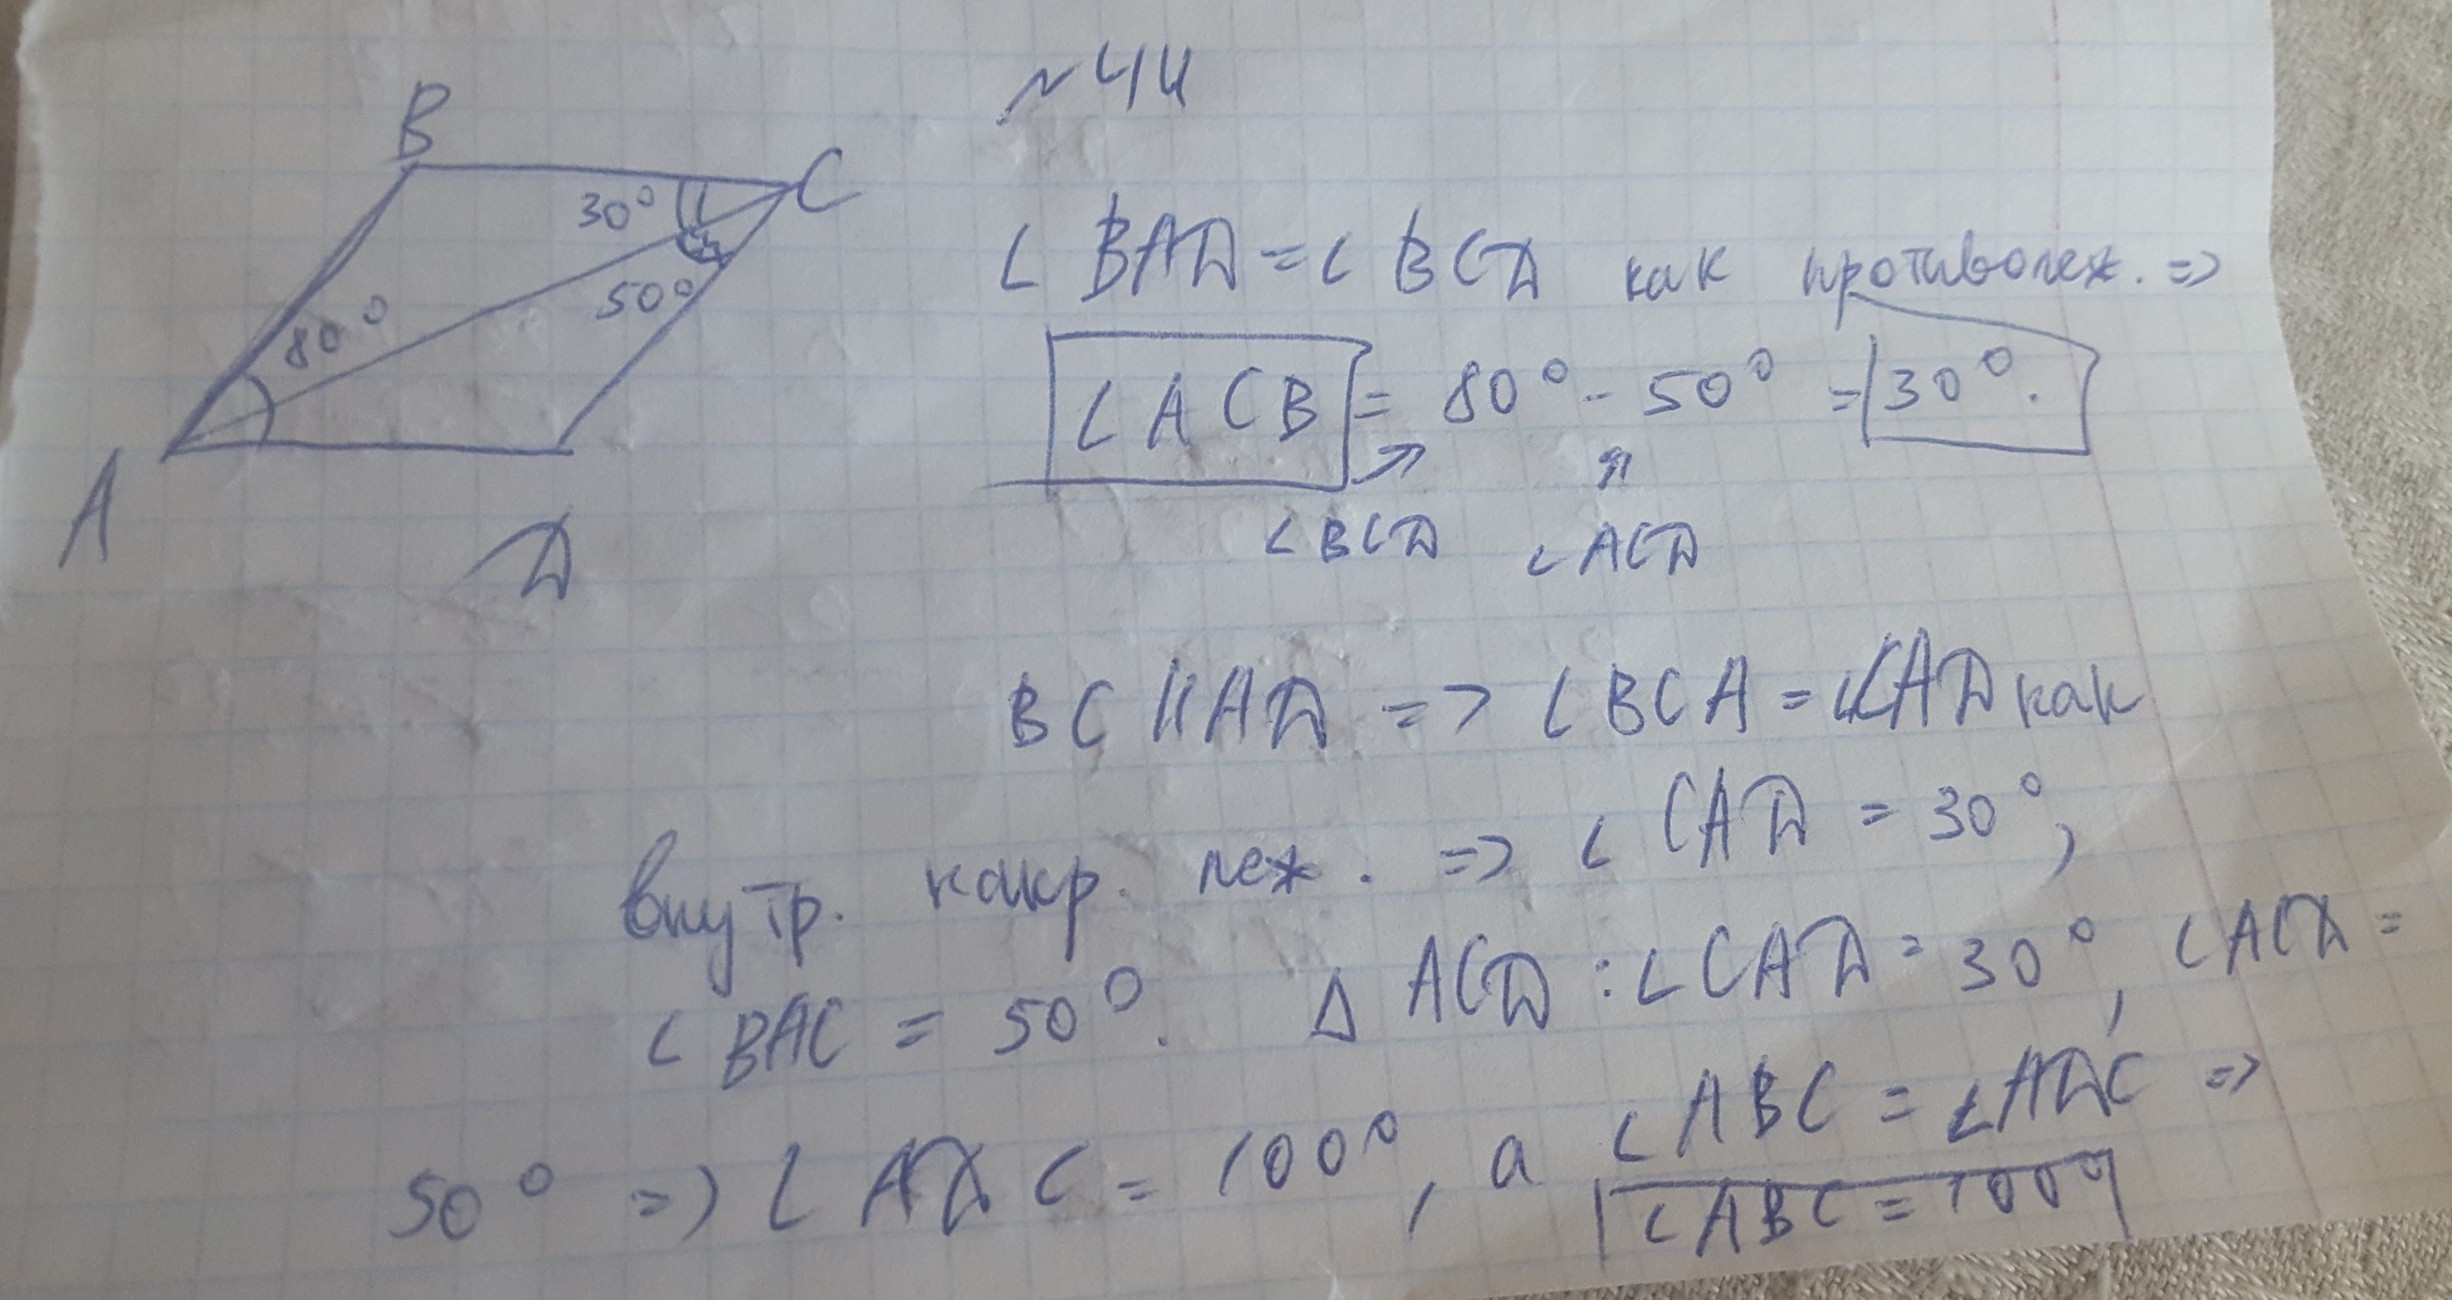 № 44
B
C
30°
50°
80°
A
Д
∠ BAД = ∠ BCД как противолеж. =>
∠ ACB = 80° - 50° = 30°.
∠ BCД ∠ ACД
BC || AД => ∠ BCA = ∠CAД как
внутр. накр. леж. => ∠ CAД = 30°,
∠ BAC = 50°. Δ ACД : ∠CAД = 30°, ∠ACД =
50° => ∠ AДC = 100°, а ∠ABC = ∠AДC =>
∠ABC = 100°